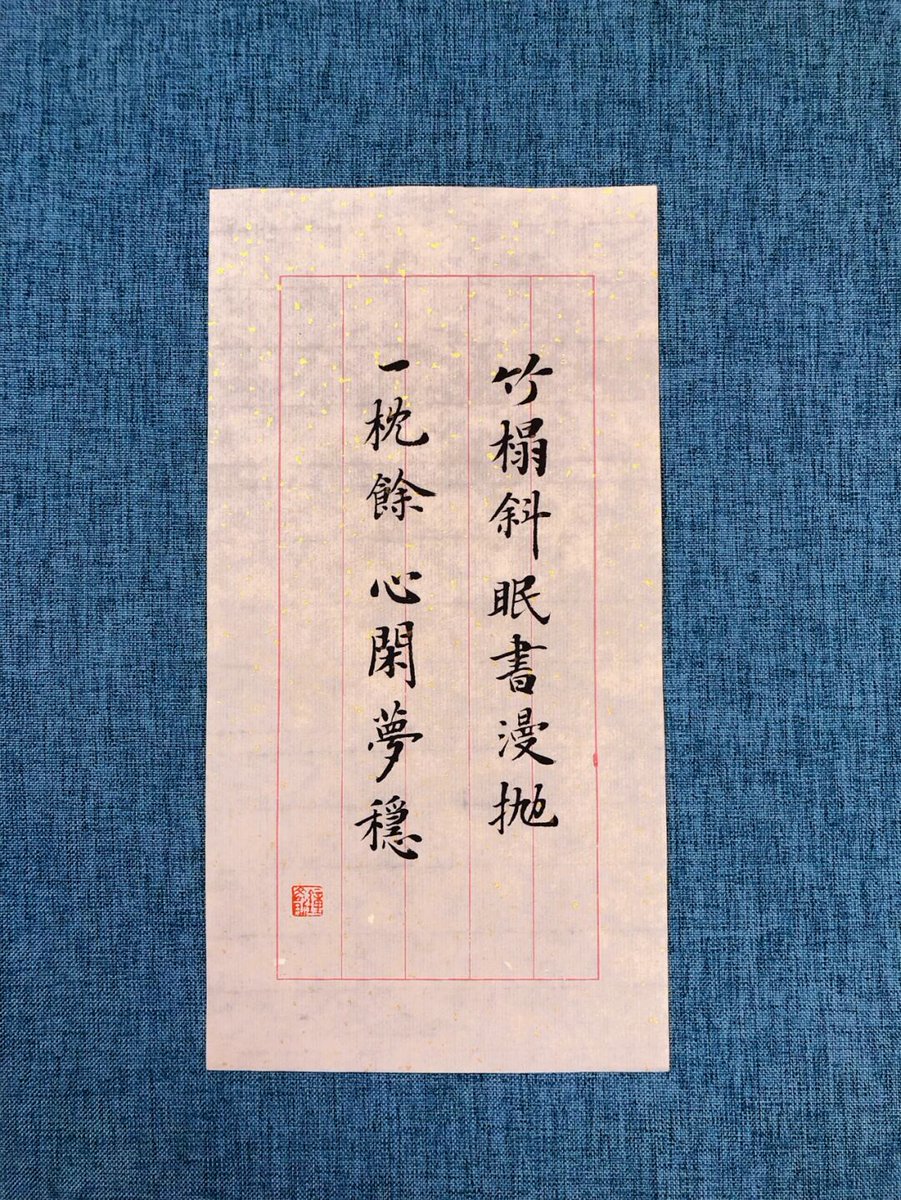 竹榻斜眠書漫抛
一枕餘心閑夢穩